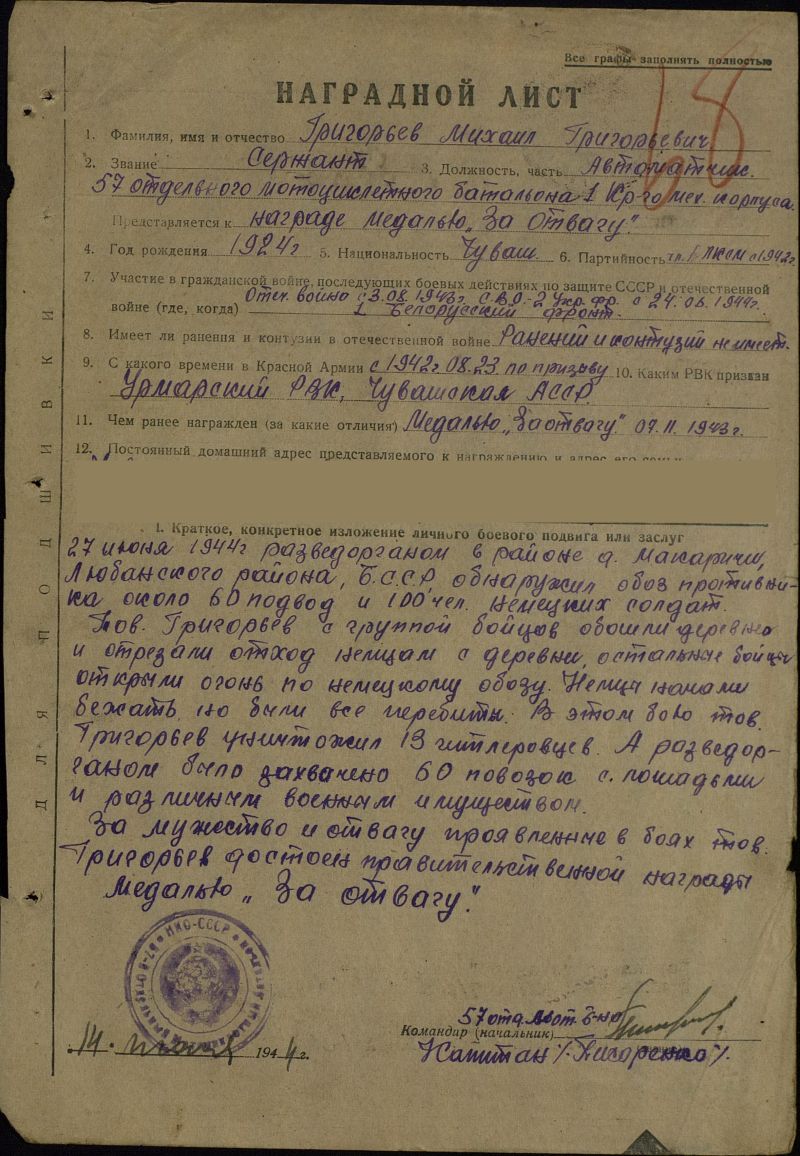 Все графы заполнять полностью
НАГРАДНОЙ ЛИСТ
1. Фамилия, имя и отчество Григорьев Михаил Григорьевич.
2. Звание Сержант 3. Должность, часть Автоматчик.
57 отдельного мотоциклетного батальона 1 Кр-го мех. корпуса.
Представляется к награде Медалью „За Отвагу".
4. Год рождения 1924г 5. Национальность Чуваш. 6. Партийность ВЛКСМ с 1942г.
7. Участие в гражданской войне, последующих боевых действиях по защите СССР и отечественной
войне (где, когда) Отеч. война с 3.08.1943г. С.В.О.-2 Укр. фр. с 24.06.1944г.
1 Белорусский фронт.
8. Имеет ли ранения и контузии в отечественной войне Ранений и контузий не имеет.
9. С какого времени в Красной Армии с 1942г 08.23. по призыву 10. Каким РВК призван
Урмарский РВК, Чувашская АССР
11. Чем ранее награжден (за какие отличия) Медалью „За отвагу." 07.11.1943г.
12. Постоянный домашний адрес представляемого к награждению и адрес его семьи
ДЛЯ ПОДШИВКИ
1. Краткое, конкретное изложение личного боевого подвига или заслуг
27 июня 1944г разведорганом в районе д. Макаричи,
Любанского района, Б.С.С.Р. обнаружил обоз противни-
ка около 60 подвод и 100 чел. немецких солдат.
Тов. Григорьев с группой бойцов обошли деревню
и отрезали отход немцам с деревни, остальные бойцы
открыли огонь по немецкому обозу. Немцы начали
бежать, но были все перебиты. В этом бою тов.
Григорьев уничтожил 13 гитлеровцев. А разведор-
ганом было захвачено 60 повозок с лошадьми
и различным военным имуществом.
За мужество и отвагу проявленные в боях тов.
Григорьев достоен правительственной награды
Медалью „За отвагу".
НКО-СССР
57 отд. мот. б-на
Командир (начальник)
14. июля 1944г.
Капитан /Писаренко/.